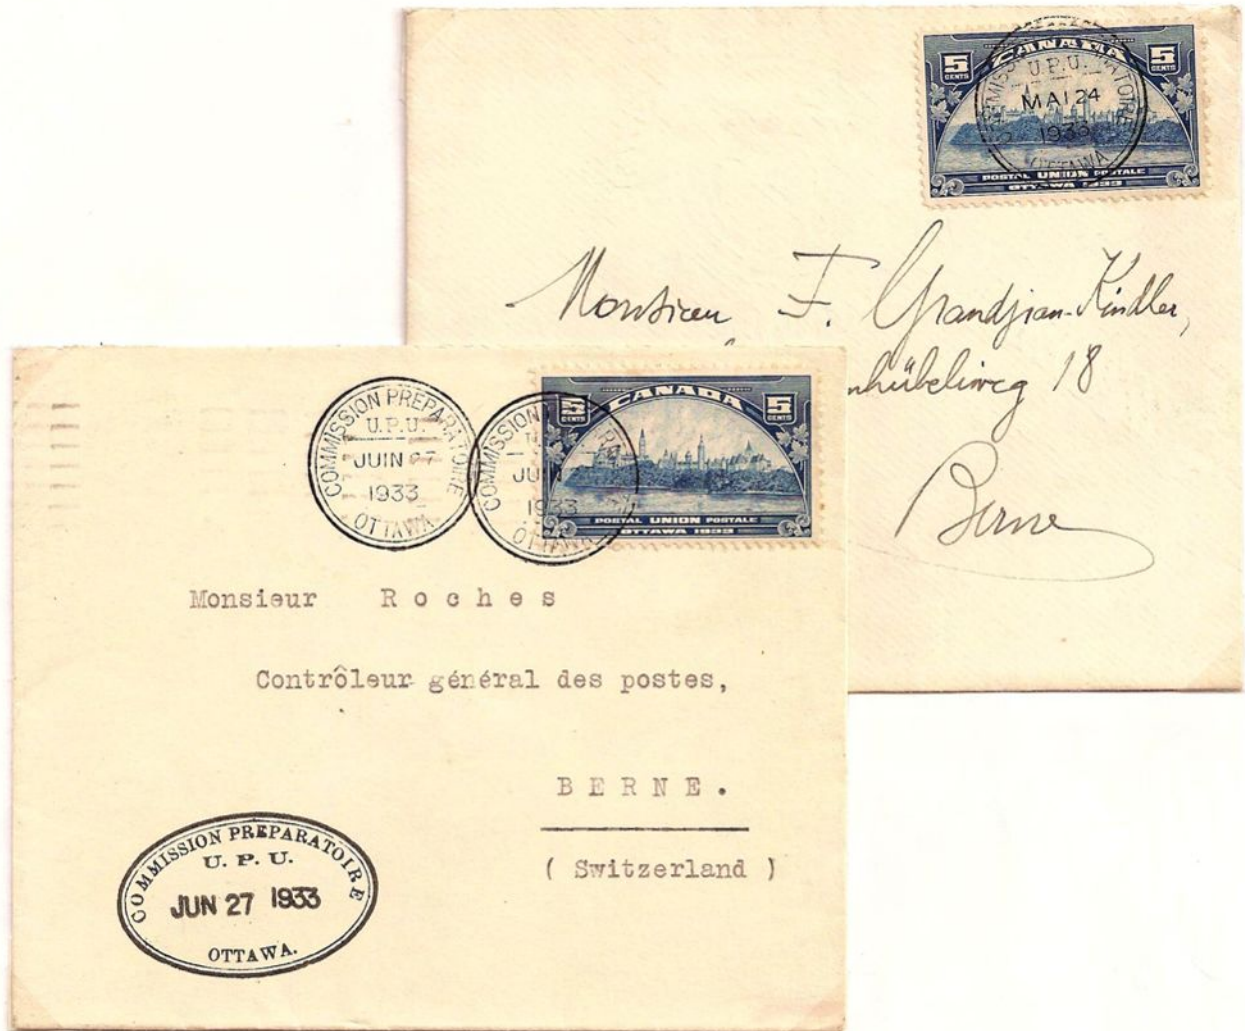 5 CENTS CANADA 5 CENTS
COMMISSION PREPARATOIRE
U.P.U.
MAI 24
1933
OTTAWA
POSTAL UNION POSTALE
OTTAWA 1933
Monsieur F. Grandjean-Kindler,
nhübeliweg 18
Berne
COMMISSION PREPARATOIRE
U.P.U.
JUIN 27
1933
OTTAWA
COMMISSION
JUIN
1933
OTTAWA
5 CENTS CANADA 5 CENTS
POSTAL UNION POSTALE
OTTAWA 1933
Monsieur Roches
Contrôleur général des postes,
BERNE.
( Switzerland )
COMMISSION PREPARATOIRE
U. P. U.
JUN 27 1933
OTTAWA.